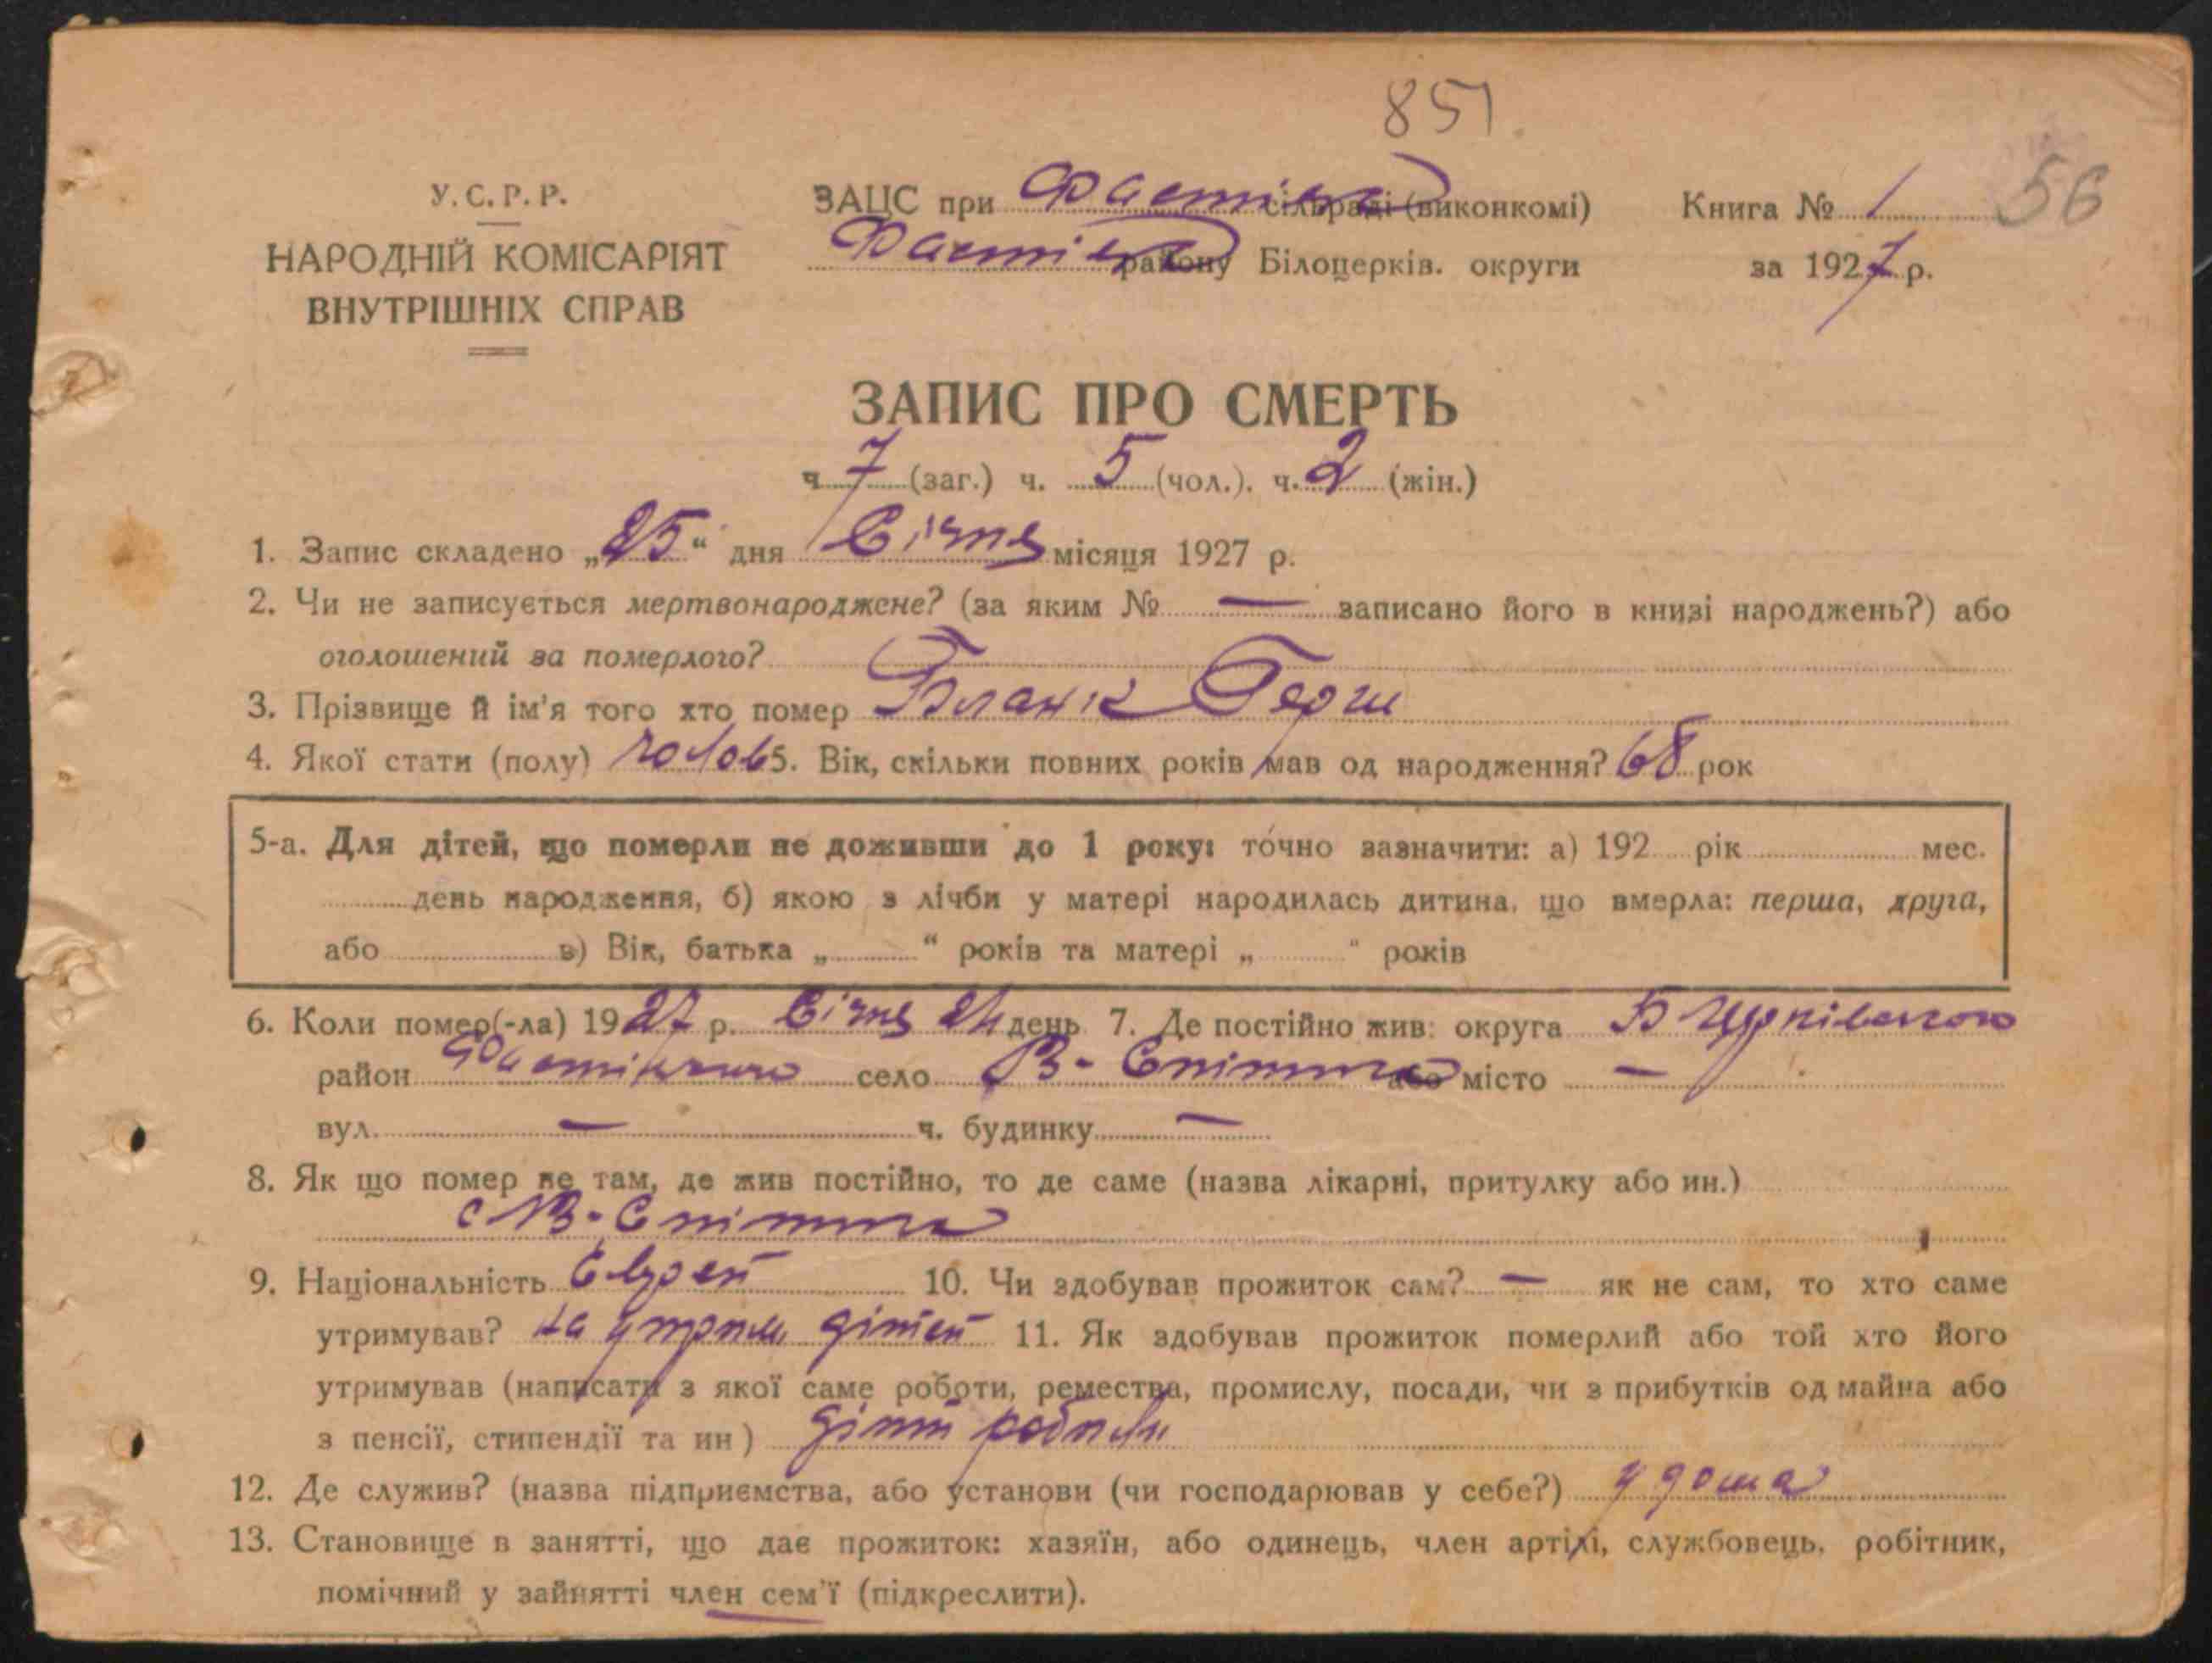 851
У.С.Р.Р.
НАРОДНІЙ КОМІСАРІЯТ
ВНУТРІШНІХ СПРАВ
ЗАЦС при Фастівс сільраді (виконкомі)
Фастівс району Білоцерків. округи
Книга № 1
56
за 1927 р.
ЗАПИС ПРО СМЕРТЬ
ч 7 (заг.) ч. 5 (чол.). ч. 2 (жін.)
1. Запис складено „25“ дня Січня місяця 1927 р.
2. Чи не записується мертвонароджене? (за яким № — записано його в книзі народжень?) або
оголошений за померлого?
3. Прізвище й ім'я того хто помер Бланк Герш
4. Якої стати (полу) чолов 5. Вік, скільки повних років мав од народження? 68 рок
5-а. Для дітей, що померли не доживши до 1 року: точно зазначити: а) 192 рік мес.
день народження, б) якою з лічби у матері народилась дитина, що вмерла: перша, друга,
або в) Вік, батька „ “ років та матері „ “ років
6. Коли помер(-ла) 1927 р. Січня 24 день 7. Де постійно жив: округа
район село В- Снітинка або місто —
вул. — ч. будинку —
8. Як що помер не там, де жив постійно, то де саме (назва лікарні, притулку або ин.)
с В-Снітинка
9. Національність Єврей 10. Чи здобував прожиток сам? — як не сам, то хто саме
утримував? на утрим дітей 11. Як здобував прожиток померлий або той хто його
утримував (написати з якої саме роботи, ремества, промислу, посади, чи з прибутків од майна або
з пенсії, стипендії та ин)
12. Де служив? (назва підприємства, або установи (чи господарював у себе?) у дома
13. Становище в занятті, що дає прожиток: хазяїн, або одинець, член артілі, службовець, робітник,
помічний у зайнятті член сем'ї (підкреслити).